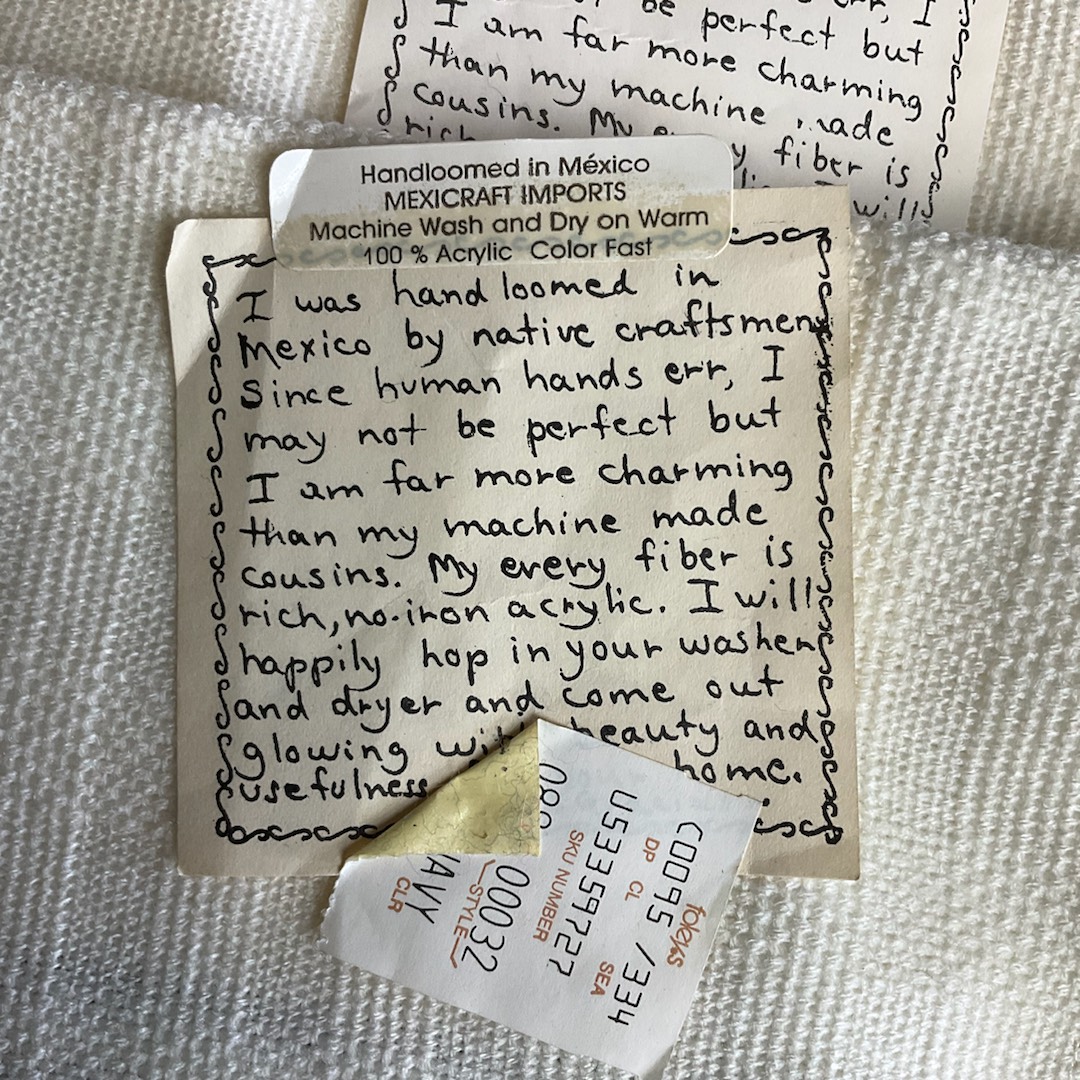 be perfect but
I am far more charming
than my machine made
cousins. My
fiber is
rich
will
Handloomed in México
MEXICRAFT IMPORTS
Machine Wash and Dry on Warm
100 % Acrylic Color Fast
I was handloomed in
Mexico by native craftsmen
Since human hands err, I
may not be perfect but
I am far more charming
than my machine made
cousins. My every fiber is
rich, no-iron acrylic. I will
happily hop in your washer
and dryer and come out
glowing with beauty and
usefulness home.
foley's
C0095 /334
DP CL SEA
U533359727
SKU NUMBER
00032
STYLE
CLR